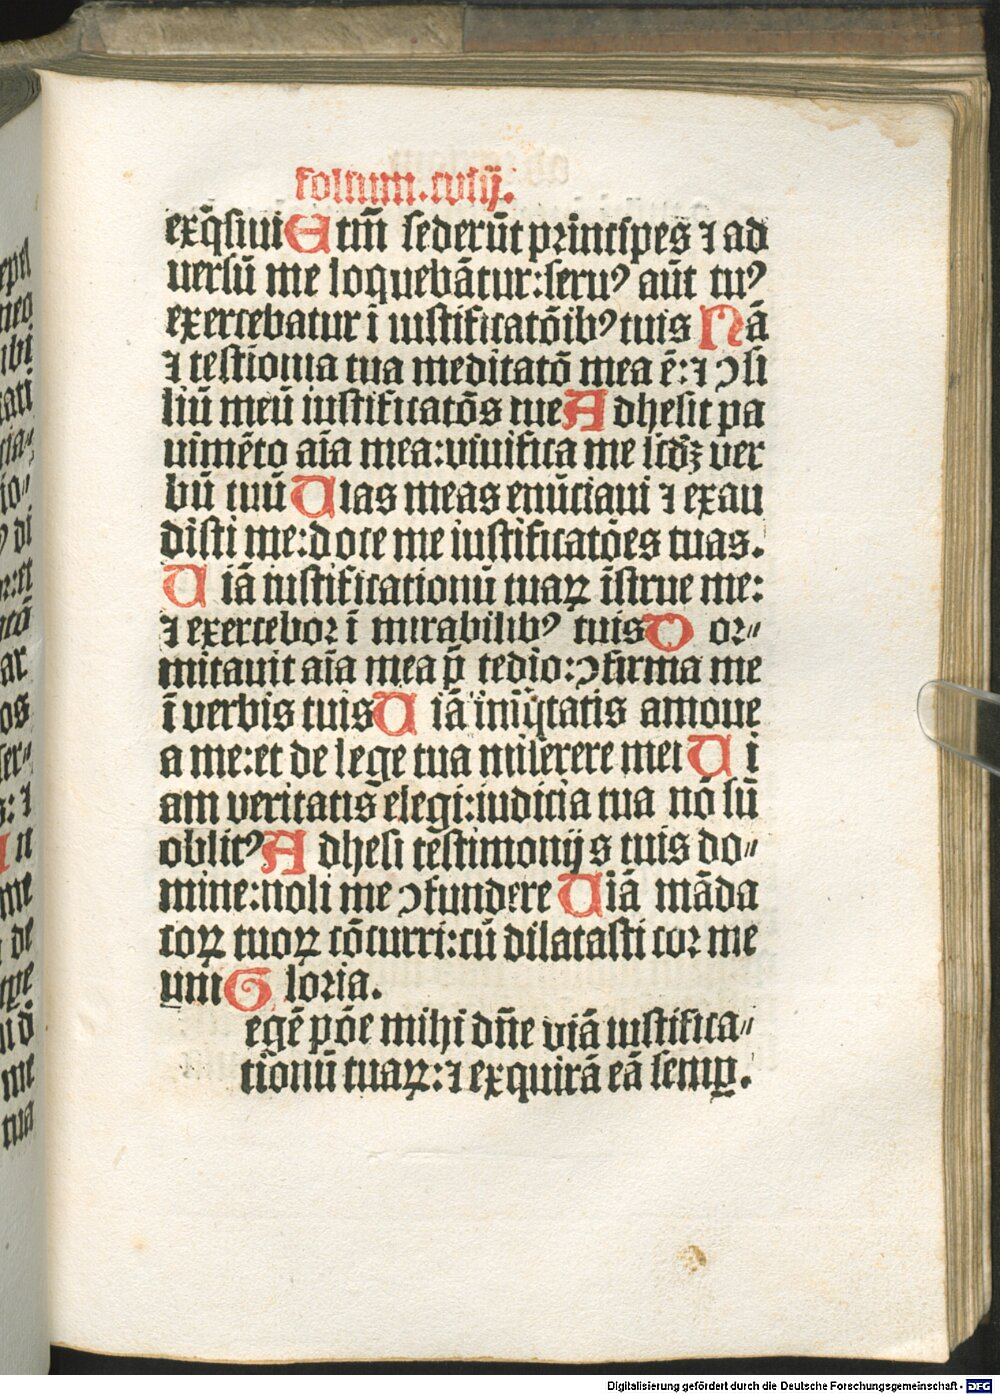 folium.cviij.
exq̃siui Etm̄ sederūt principes ⁊ ad
uersū me loquebātur:seruꝰ aūt tuꝰ
exercebatur ī iustificatōibꝰ tuis Nā
⁊ testionia tua meditatō mea ē:⁊ ↄsi
liū meū iustificatōs tue Adhesit pa
uimēto aīa mea:viuifica me scd̄ꝫ ver
bū tuū Uias meas enūciaui ⁊ exau
disti me:doce me iustificatōes tuas.
Uiā iustificationū tuaꝝ īstrue me:
⁊ exercebor ī mirabilibꝰ tuis Dor⸗
mitauit aīa mea p̄ tedio:ↄfirma me
ī verbis tuis Uiā iniq̄tatis amoue
a me:et de lege tua miserere mei Ui
am veritatis elegi:iudicia tua nō sū
oblitꝰ Adhesi testimonijs tuis do⸗
mine:noli me ↄfundere Uiā māda
toꝝ tuoꝝ cōcurri:cū dilatasti cor me
um Gloria.
egē pōe mihi dn̄e viā iustifica⸗
tionū tuaꝝ:⁊ exquirā eā semꝑ.
Digitalisierung gefördert durch die Deutsche Forschungsgemeinschaft - DFG